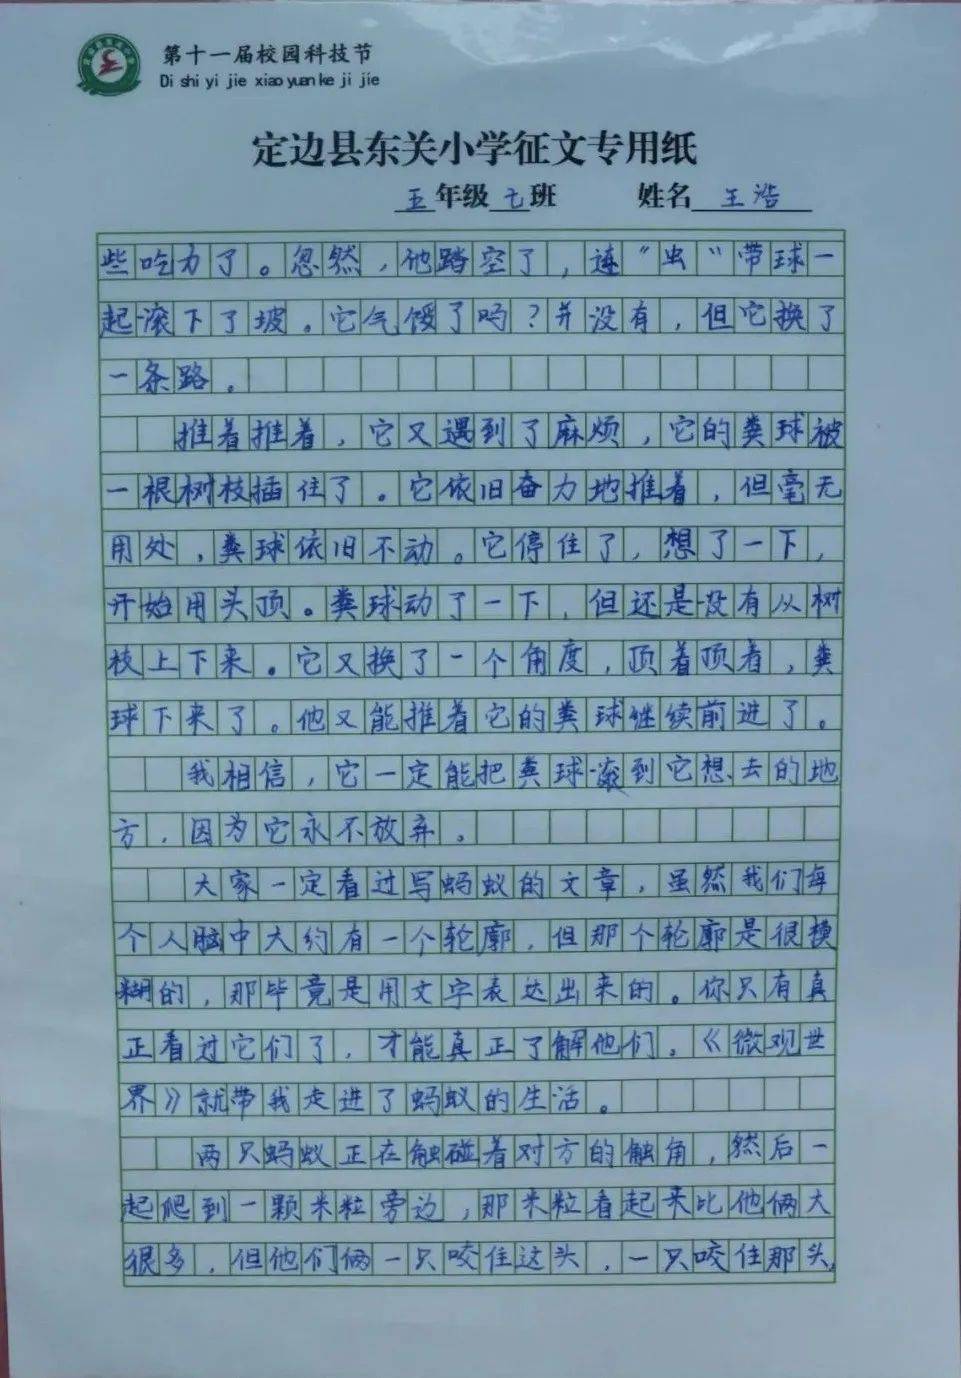 第十一届校园科技节
Di shi yi jie xiao yuan ke ji jie
定边县东关小学征文专用纸
五年级七班 姓名 王浩
些吃力了。忽然，他踏空了，连“虫“带球一
起滚下了坡。它气馁了吗？并没有，但它换了
一条路。
推着推着，它又遇到了麻烦，它的粪球被
一根树枝插住了。它依旧奋力地推着，但毫无
用处，粪球依旧不动。它停住了，想了一下，
开始用头顶。粪球动了一下，但还是没有从树
枝上下来。它又换了一个角度，顶着顶着，粪
球下来了。他又能推着它的粪球继续前进了。
我相信，它一定能把粪球滚到它想去的地
方，因为它永不放弃。
大家一定看过写蚂蚁的文章，虽然我们每
个人脑中大约有一个轮廓，但那个轮廓是很模
糊的，那毕竟是用文字表达出来的。你只有真
正看过它们了，才能真正了解他们。《微观世
界》就带我走进了蚂蚁的生活。
两只蚂蚁正在触碰着对方的触角，然后一
起爬到一颗米粒旁边，那米粒看起来比他俩大
很多，但他们俩一只咬住这头，一只咬住那头，